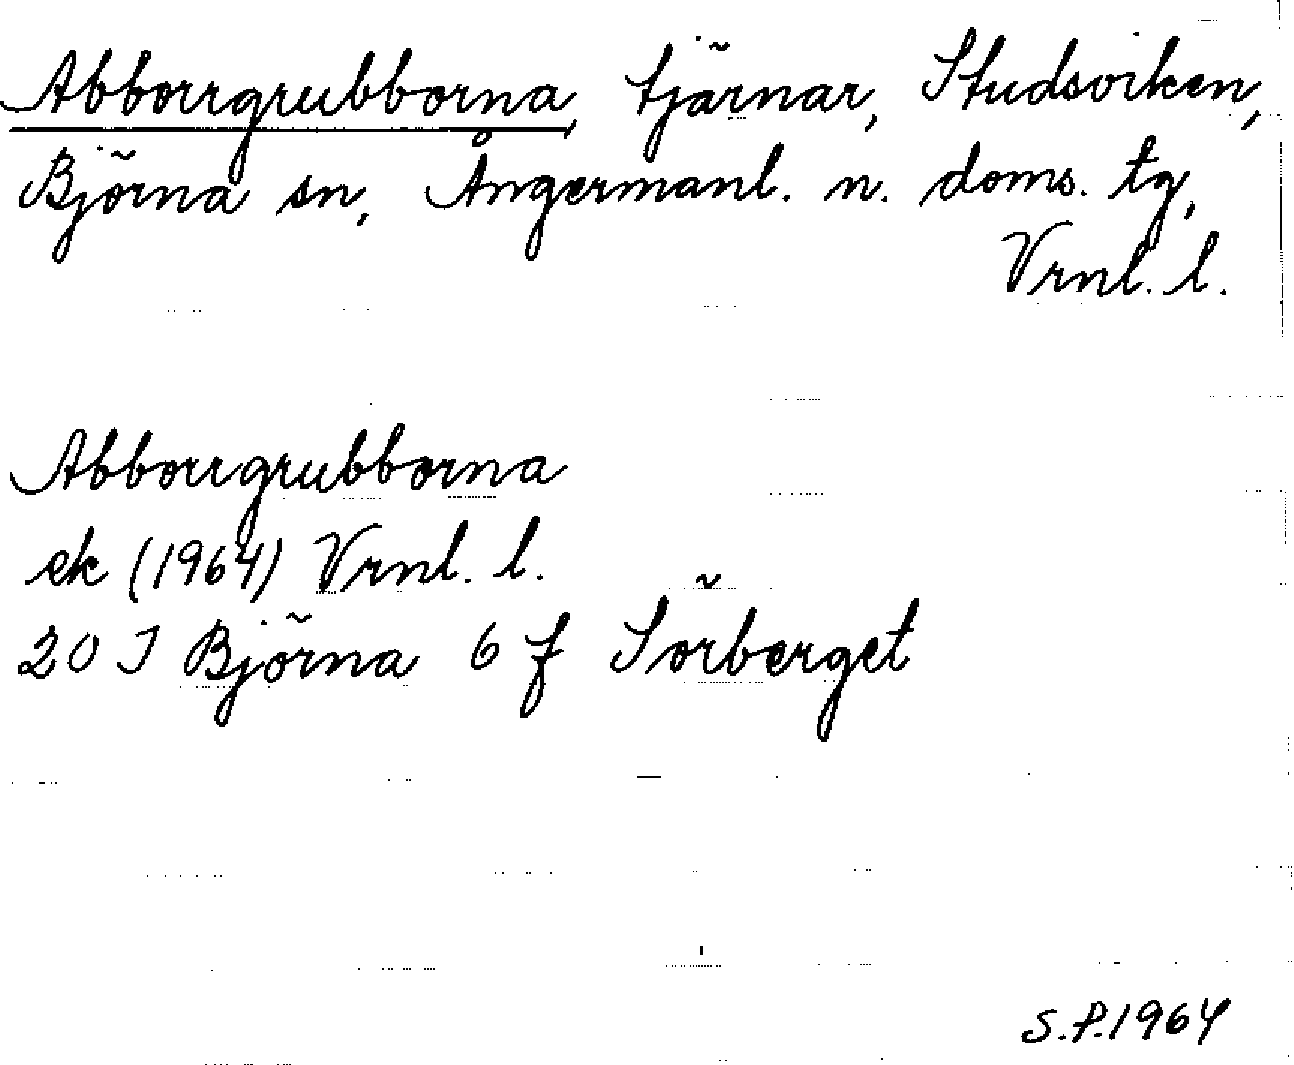 Abborrgrubborna, tjärnar, Studsviken,
Björna sn, Ångermanl. n. doms. tg,
Vrnl. l.
Abborrgrubborna
ek (1964) Vrnl. l.
20 J Björna 6 f Sörberget
S.P. 1964